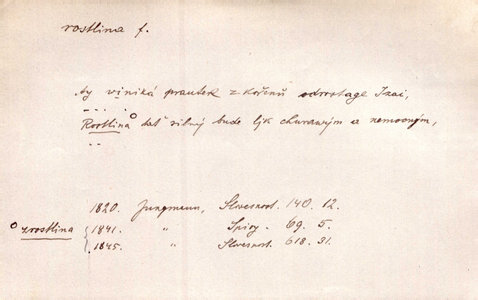 rostlina f.
Ay viniká prautek z kořenů odrostage Izai,
Rostlina° dať silný bude lýk churawým a nemocným,
1820. Jungmann, Slowesnost. 140. 12.
° zrostlina { 1841. " Spisy. 69. 5.
1845. " Slowesnost. 618. 31.